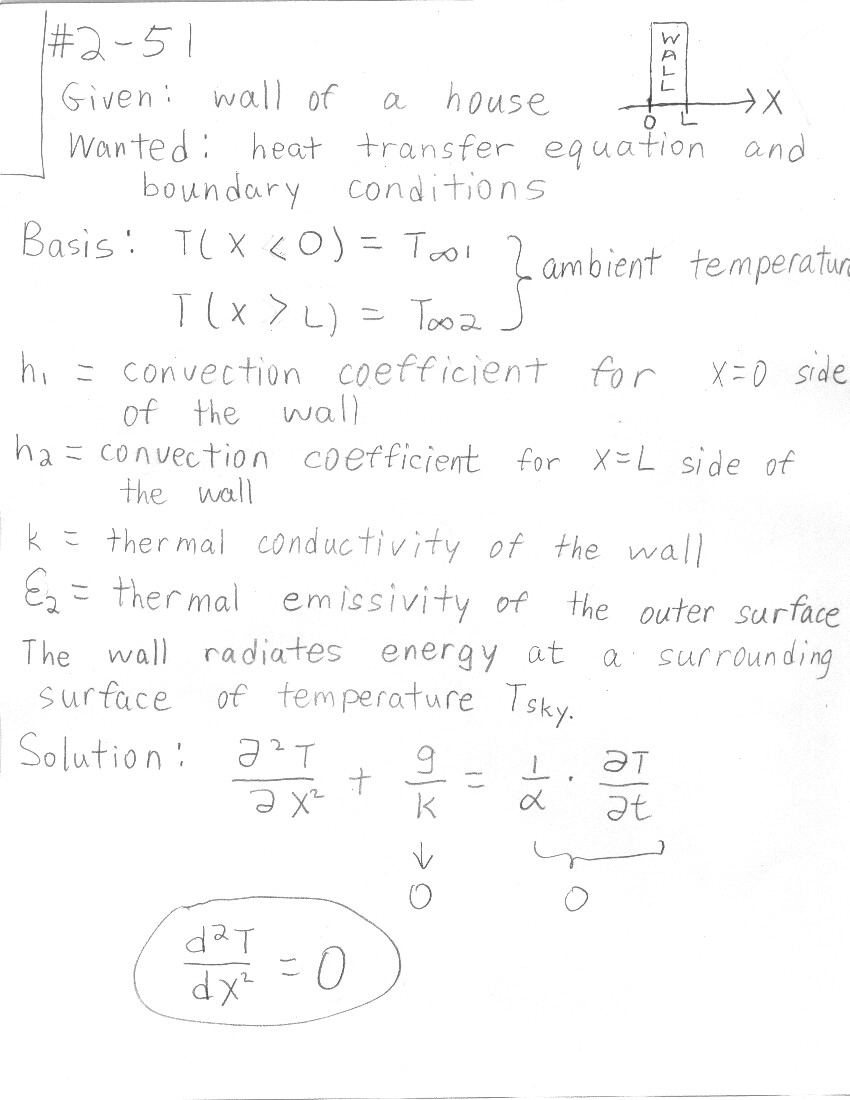 #2-51
Given: wall of a house
WALL
0 L X
Wanted: heat transfer equation and
boundary conditions
Basis: T(X < 0) = T∞1
T(X > L) = T∞2
} ambient temperatur
h₁ = convection coefficient for X=0 side
of the wall
h₂ = convection coefficient for X=L side of
the wall
k = thermal conductivity of the wall
Ɛ₂ = thermal emissivity of the outer surface
The wall radiates energy at a surrounding
surface of temperature Tsky.
Solution: ∂²T/∂X² + g/k = 1/α · ∂T/∂t
↓
0 0
d²T/dX² = 0